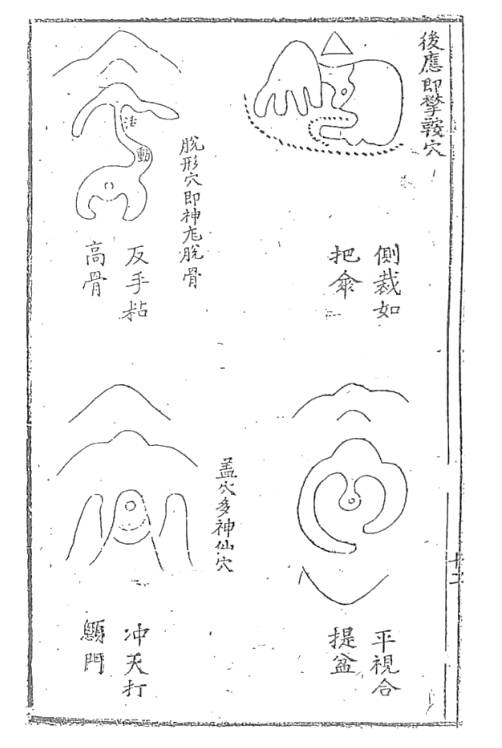 後應即攀鞍穴
側裁如
把傘
脫形穴即神龙脫骨
活
動
反手粘
高骨
平視合
提盆
盖穴多神仙穴
冲天打
顖門
十二